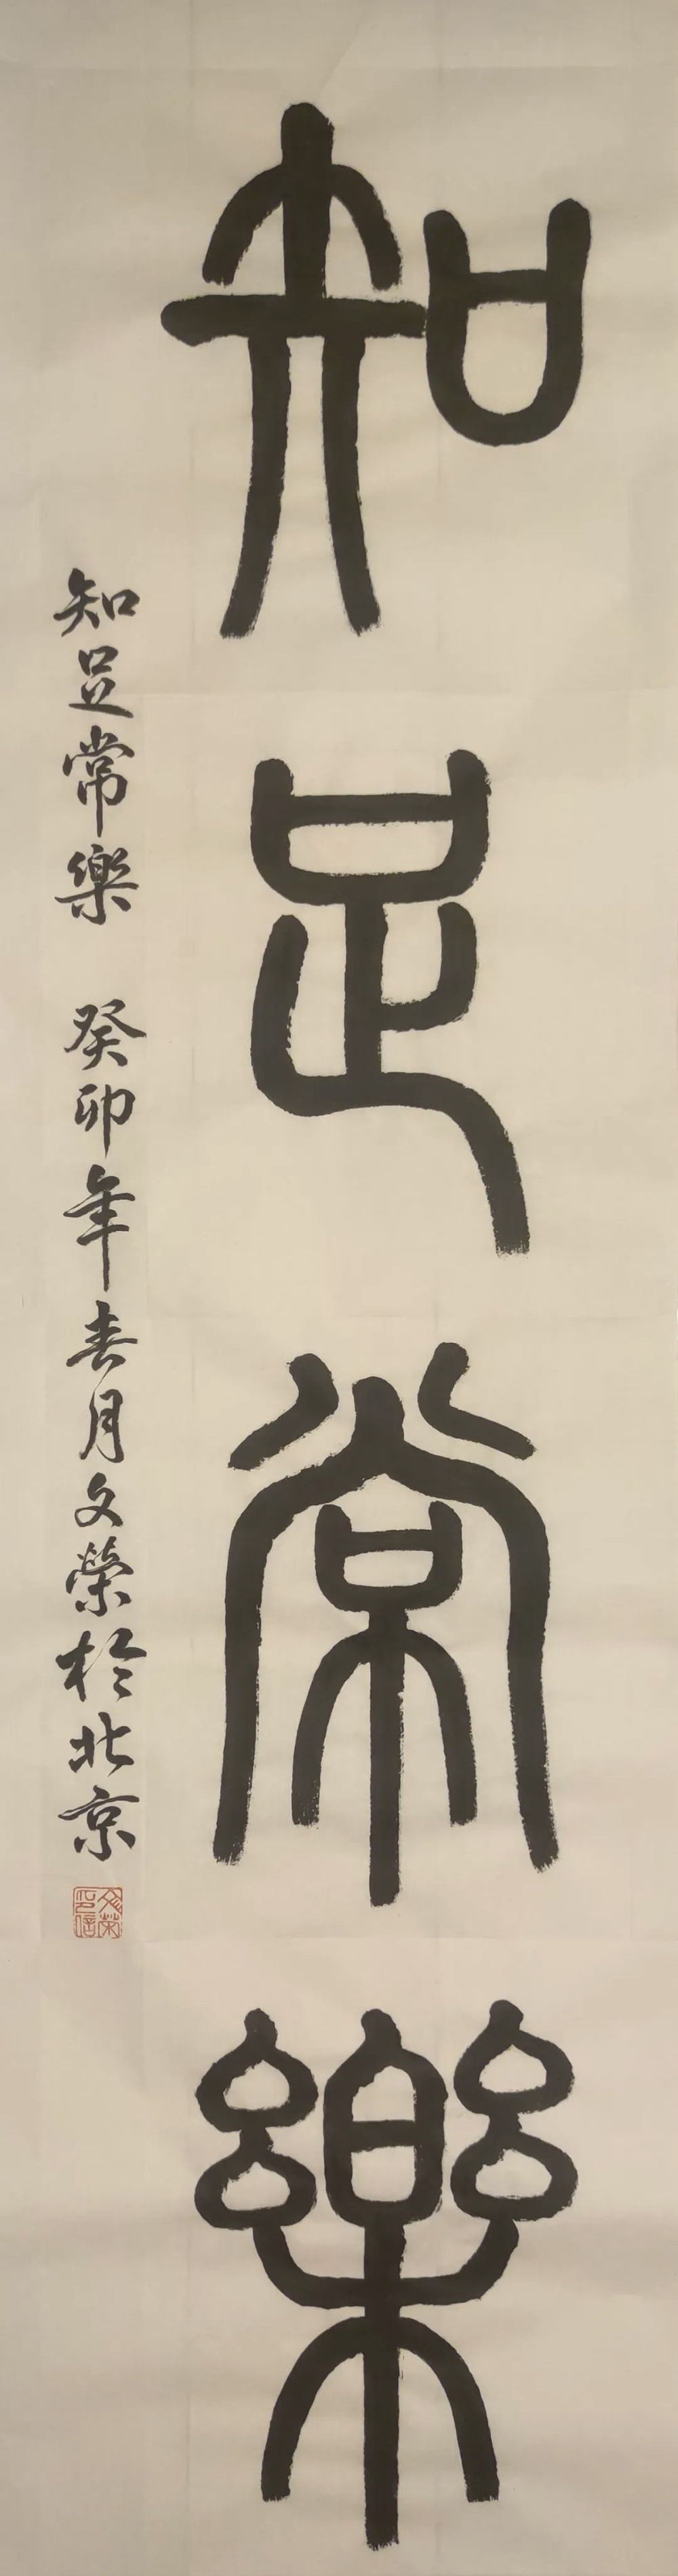 知足常樂
知足常樂 癸卯年春月文榮於北京
文榮印信